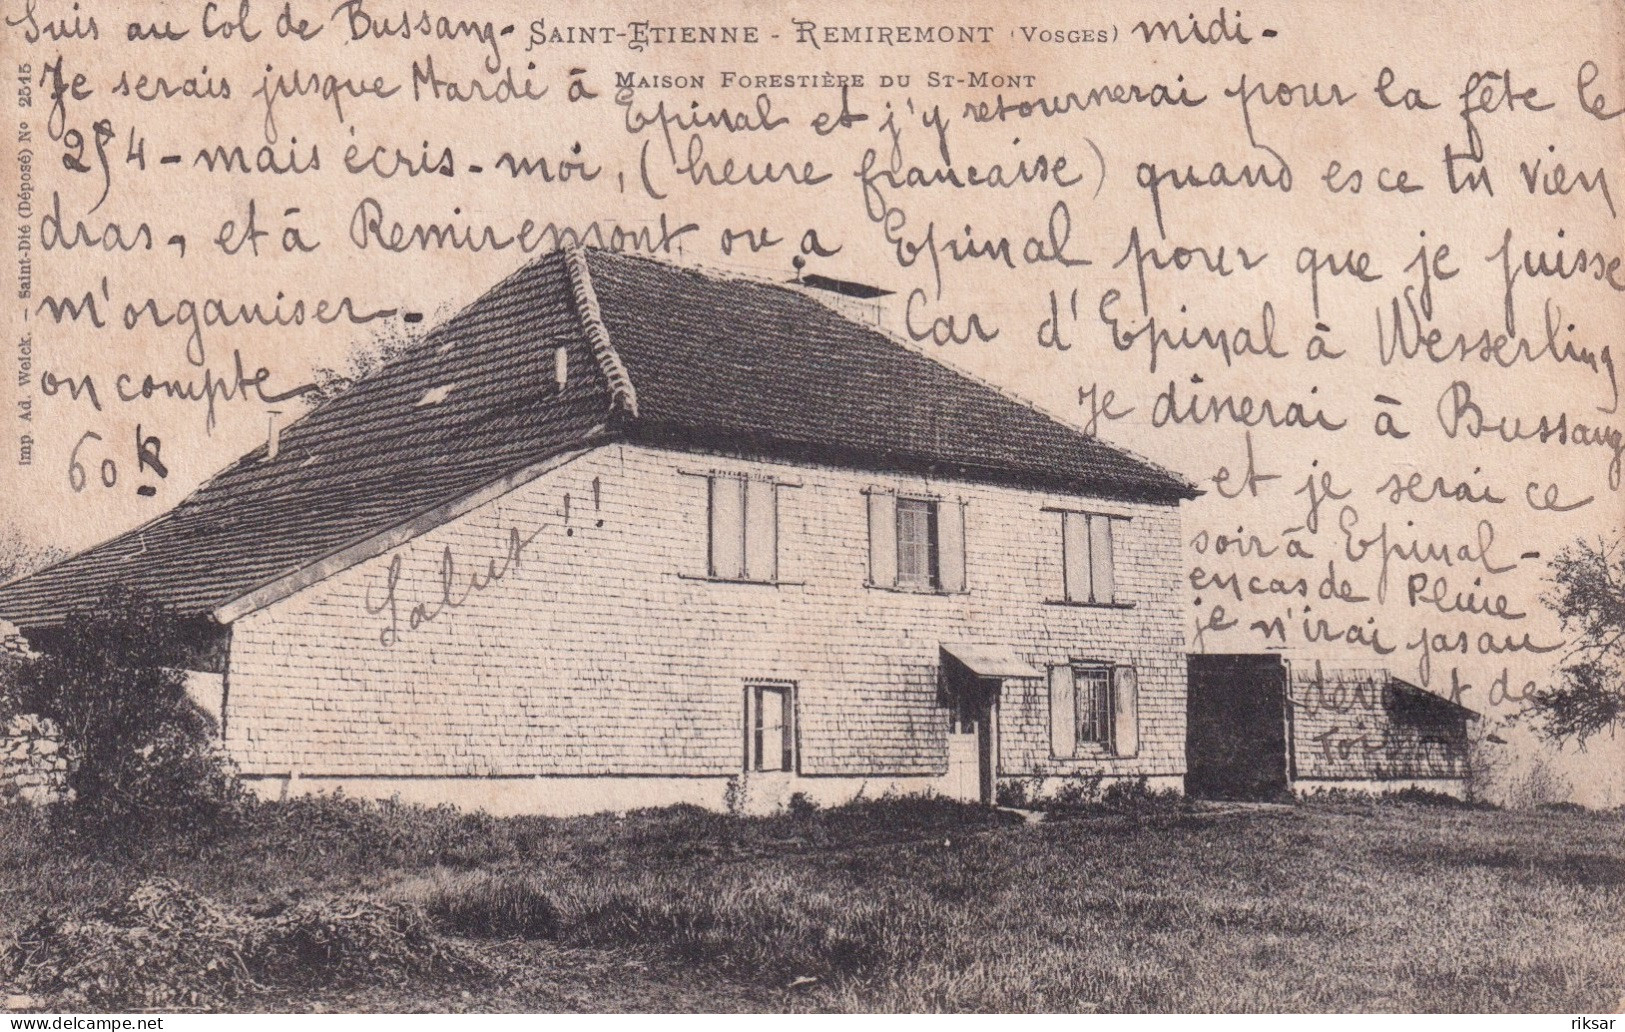 Suis au Col de Bussang - midi -
SAINT-ETIENNE - REMIREMONT (VOSGES)
MAISON FORESTIÈRE DU ST-MONT
Je serais jusque Mardi à
Epinal et j'y retournerai pour la fête le
25 4 - mais écris-moi, (heure francaise) quand esce tu vien
dras, et à Remiremont ou a Epinal pour que je puisse
m'organiser - Car d'Epinal à Wesserling
on compte
60 k -
Je dinerai à Bussang
et je serai ce
soir à Epinal -
en cas de Pluie
je n'irai pas au
devant de
toi
Salut!!
Imp. Ad. Weick. - Saint-Dié (Déposé) No 2515
riksar